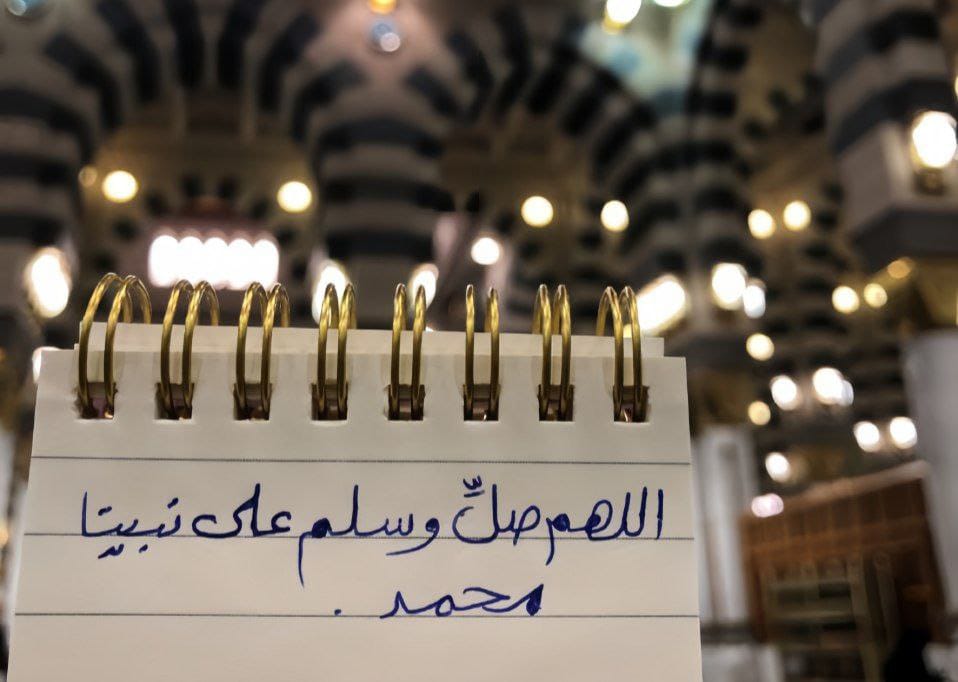 اللهم صلِّ وسلم على نبينا
محمد .